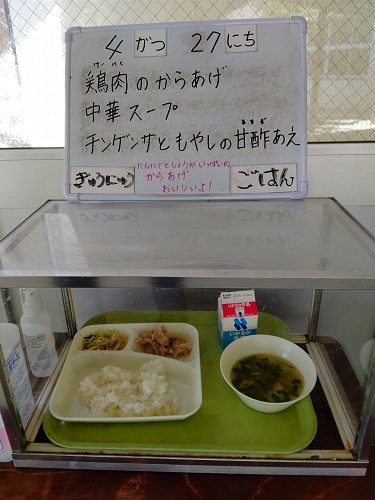 4がつ 27にち
鶏肉のからあげ
中華スープ
チンゲンサイともやしの甘酢あえ
にんにくとしょうがいっぱいの
からあげ
おいしいよ!
ぎゅうにゅう
ごはん